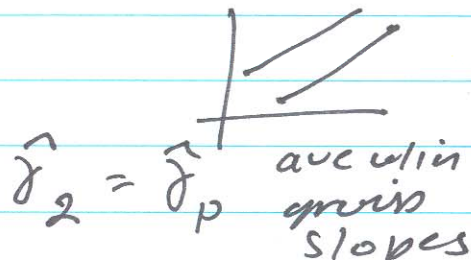 γ̂₂ = γ̂ₚ ave w/in
group
slopes